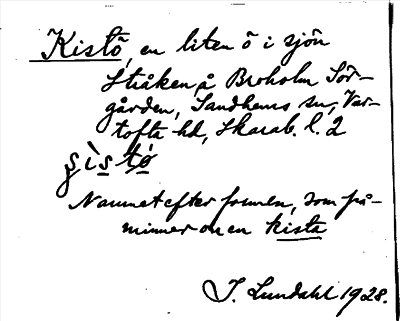 Kistö, en liten ö i sjön
Stråken å Broholm Sör-
gården, Sandhems sn, Var-
tofta hd, Skarab. l. 2
Namnet efter formen, som på-
minner om en kista
I. Lundahl 1928.